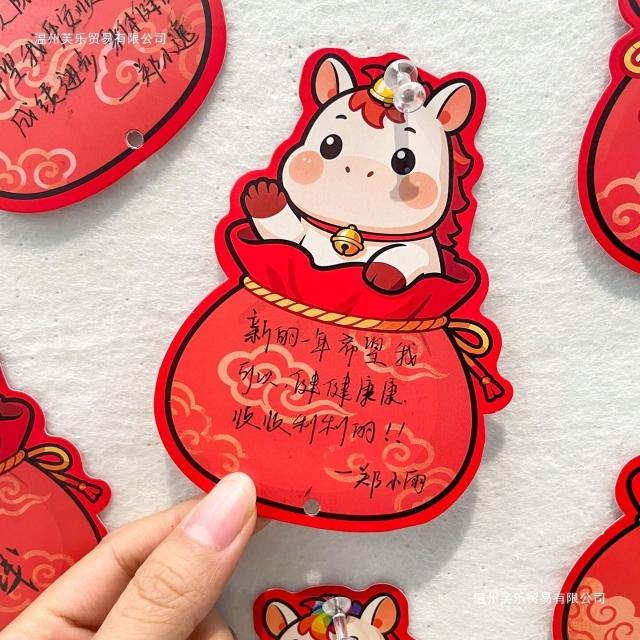 温州芙乐贸易有限公司
成绩进
新的一年希望我
可以,健健康康.
顺顺利利的!!
一郑小雨
温州芙乐贸易有限公司